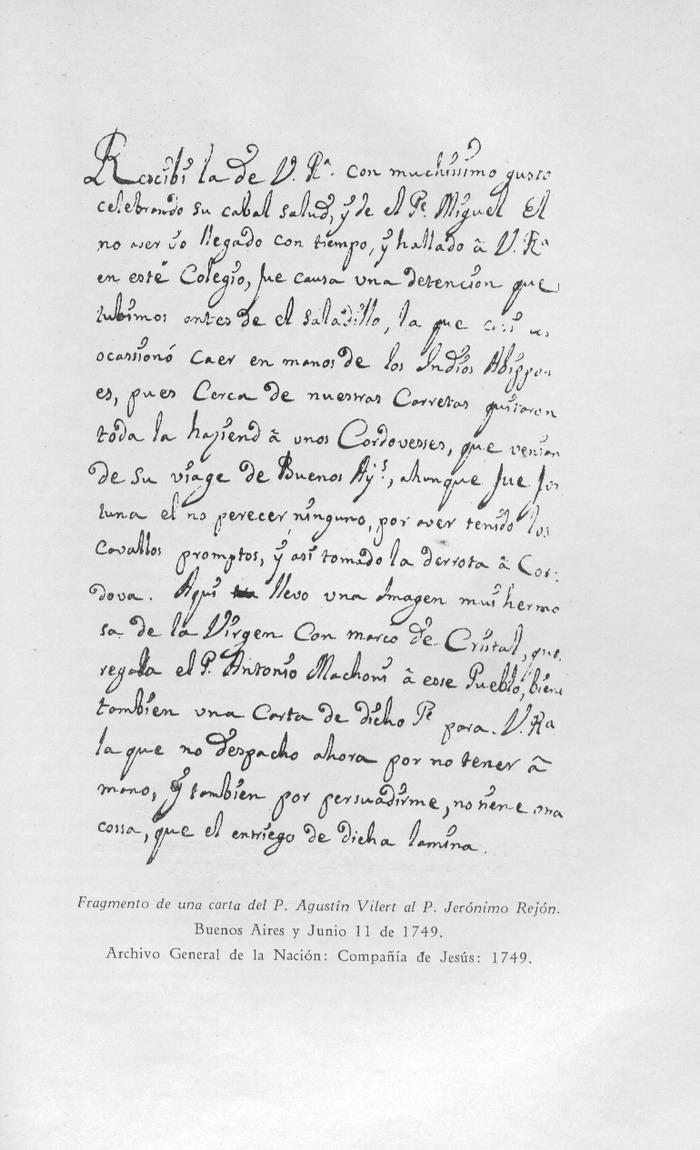 Rescibi la de V. Rª. con muchissimo gusto
celebrando su cabal salud, ÿ de el Pe. Miguel El
no aver io llegado con tiempo, ÿ hallado â V. Rª
en este Colegio, fue causa vna detencion que
tubimos antes de el saladillo, la que casi
ocassionó caer en manos de los Indios Abippon
es, pues Cerca de nuestras Carretas quitaron
toda la haziend â vnos Cordovesses, que venian
de su viage de Buenos Ays., ahunque fue for
tuna el no perecer ninguno, por aver tenido los
Cavallos promptos, ÿ asi tomado la derrota â Cor:
dova. Aqui llevo vna Imagen mui hermo
sa de la Virgen Con marco de Cristal, que
regala el P. Antonio Machoni â esse Pueblo, biene
tambien vna Carta de dicho Pe para V. Rª
la que no despacho ahora por no tener â
mano, ÿ tambien por persuadirme, no tiene otra
cossa, que el entriego de dicha lamina.
Fragmento de una carta del P. Agustín Vilert al P. Jerónimo Rejón.
Buenos Aires y Junio 11 de 1749.
Archivo General de la Nación: Compañía de Jesús: 1749.